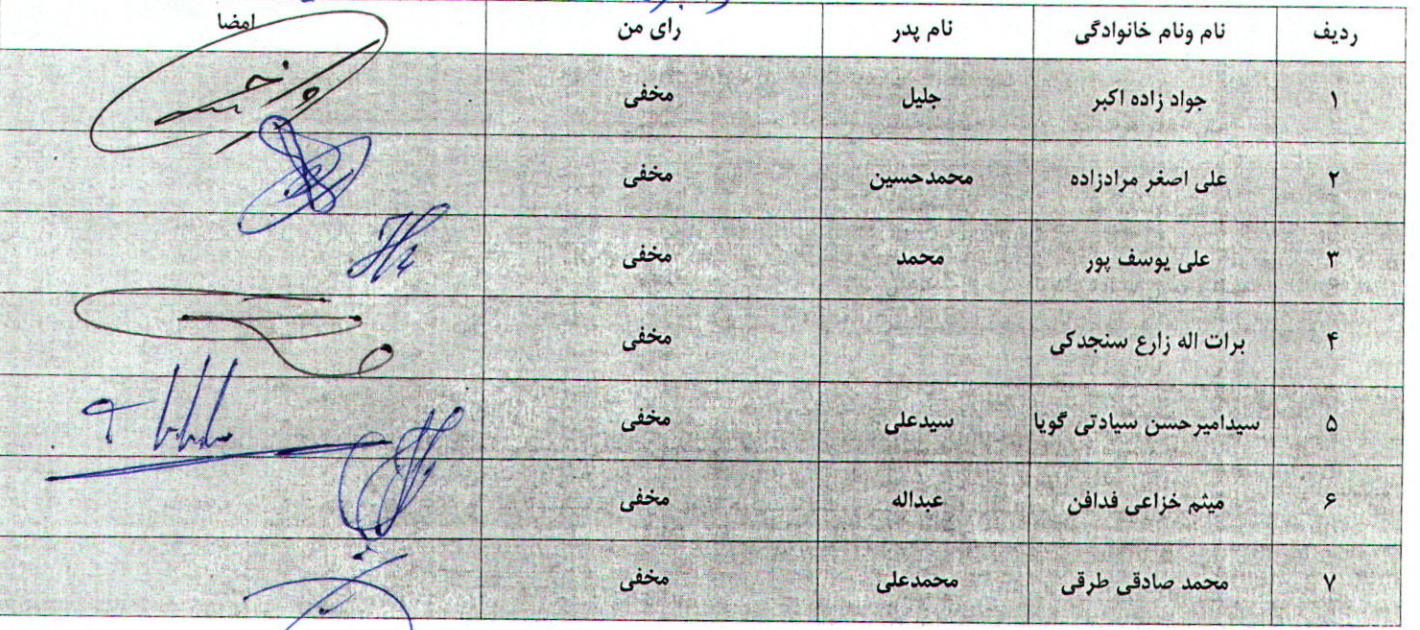 ردیف نام ونام خانوادگی نام پدر رای من امضا
۱ جواد زاده اکبر جلیل مخفی
۲ علی اصغر مرادزاده محمدحسین مخفی
۳ علی یوسف پور محمد مخفی
۴ برات اله زارع سنجدکی مخفی
۵ سیدامیرحسن سیادتی گویا سیدعلی مخفی
۶ میثم خزاعی فدافن عبداله مخفی
۷ محمد صادقی طرقی محمدعلی مخفی